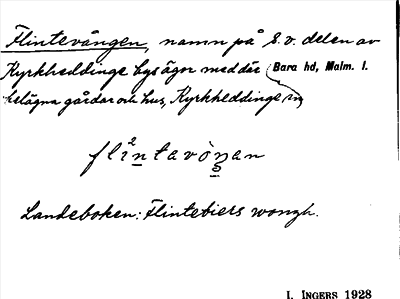 Flintevången, namn på S.v. delen av
Kyrkheddinge bys ägor med där
Bara hd, Malm. l.
belägna gårdar och hus, Kyrkheddinge sn
flintavòŋan
Landeboken: Flintebiers wongh.
I. INGERS 1928